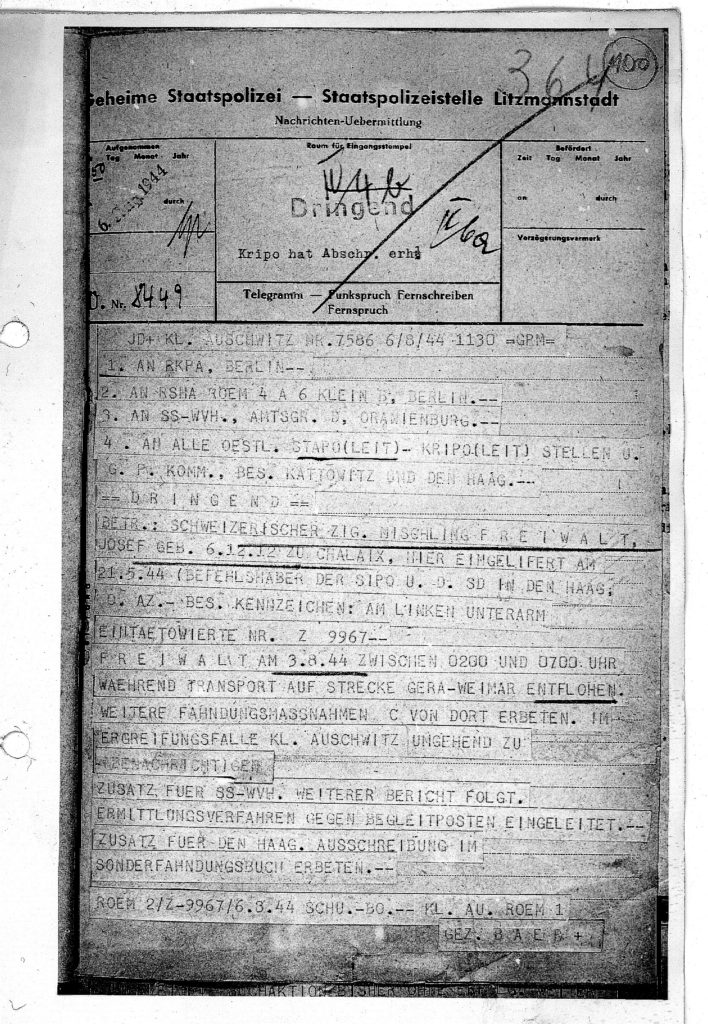 364 100
Geheime Staatspolizei — Staatspolizeistelle Litzmannstadt
Nachrichten-Uebermittlung
Aufgenommen
Tag Monat Jahr
6. 1944
durch
Raum für Eingangsstempel
IV 4 b
Dringend
II/6a
Kripo hat Abschr. erh.
Befördert
Zeit Tag Monat Jahr
an durch
Verzögerungsvermerk
Nr. 8449
Telegramm — Funkspruch Fernschreiben
Fernspruch
JD+ KL. AUSCHWITZ NR.7586 6/8/44 1130 =GRM=
1. AN RKPA, BERLIN--
2. AN RSHA ROEM 4 A 6 KLEIN B, BERLIN.--
3. AN SS-WVH., AMTSGR. D, ORANIENBURG.--
4. AN ALLE OESTL. STAPO(LEIT)- KRIPO(LEIT) STELLEN U.
G. P. KOMM., BES. KATTOWITZ UND DEN HAAG.--
== D R I N G E N D ==
BETR.: SCHWEIZERISCHER ZIG. MISCHLING F R E I W A L T,
JOSEF GEB. 6.12.12 ZU CHALAIX, HIER EINGELIFERT AM
21.5.44 (BEFEHLSHABER DER SIPO U. D. SD IN DEN HAAG,
O. AZ.- BES. KENNZEICHEN: AM LINKEN UNTERARM
EINTAETOWIERTE NR. Z 9967--
F R E I W A L T AM 3.8.44 ZWISCHEN 0200 UND 0700 UHR
WAEHREND TRANSPORT AUF STRECKE GERA-WEIMAR ENTFLOHEN.
WEITERE FAHNDUNGSMASSNAHMEN C VON DORT ERBETEN. IM
ERGREIFUNGSFALLE KL. AUSCHWITZ UNGEHEND ZU
ZUSATZ FUER SS-WVH. WEITERER BERICHT FOLGT.
ERMITTLUNGSVERFAHREN GEGEN BEGLEITPOSTEN EINGELEITET.--
ZUSATZ FUER DEN HAAG. AUSSCHREIBUNG IM
SONDERFAHNDUNGSBUCH ERBETEN.--
ROEM 2/Z-9967/6.8.44 SCHU.-BO.-- KL. AU. ROEM 1
GEZ. B A E R +